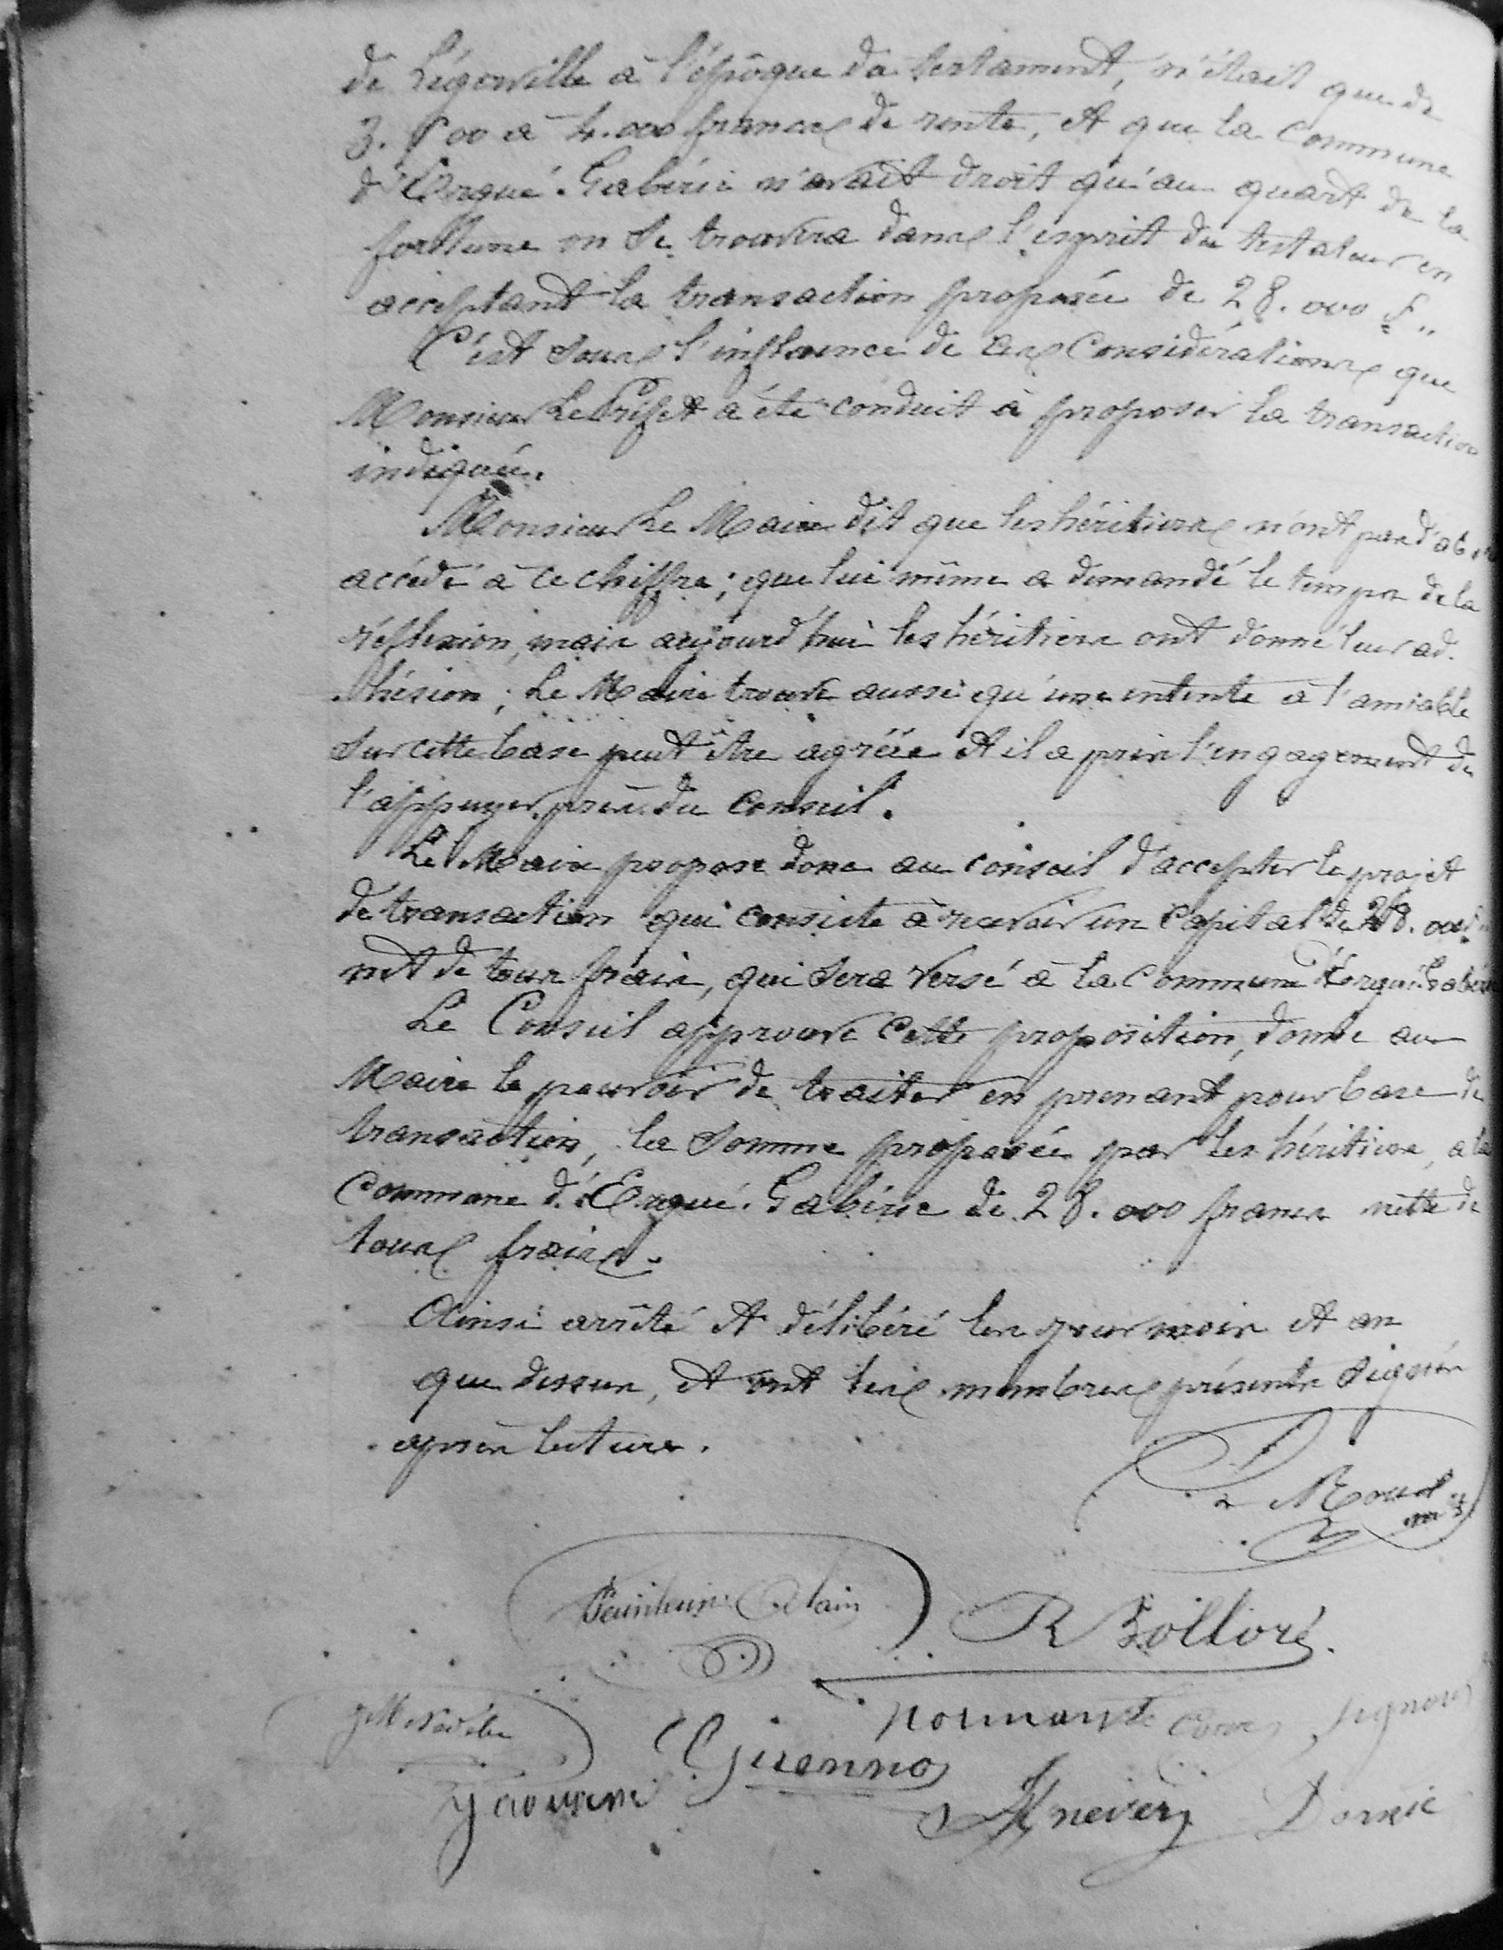 de Légerville à l'époque du testament, n'était que de
3.500 à 4.000 francs de rente, et que la Commune
d'Ergué-Gabéric n'avait droit qu'au quart de la
fortune on se trouvera dans l'esprit du testateur en
acceptant la transaction proposée de 28.000 f"
C'est sous l'influence de ces Considérations que
Monsieur Le Préfet a été conduit à proposer la transaction
indiquée.
Monsieur Le Maire dit que les héritiers n'ont pas d'ab
accédé à ce chiffre; que lui même a demandé le temps de la
réflexion, mais aujourd'hui les héritiers ont donné leur ad-
-hésion; Le Maire trouve aussi qu'une entente à l'amiable
sur cette base peut être agréée et il a pris l'engagement de
l'appuyer près du Conseil.
Le Maire propose donc au Conseil d'accepter le projet
de transaction qui consiste à recevoir un Capital de 28.000 f
net de tous frais, qui sera versé à la Commune d'Ergué-Gabéric
Le Conseil approuve cette proposition, donne au
Maire le pouvoir de traiter en prenant pour base de
transaction, la somme proposée par les héritiers, à la
Commune d'Ergué-Gabéric de 28.000 francs nette de
tous frais.
Ainsi arrêté et délibéré les jour mois et an
que dessus, et ont les membres présents signés
après lecture.
Le Roux
Alain
R Bolloré
Normant
Guennou